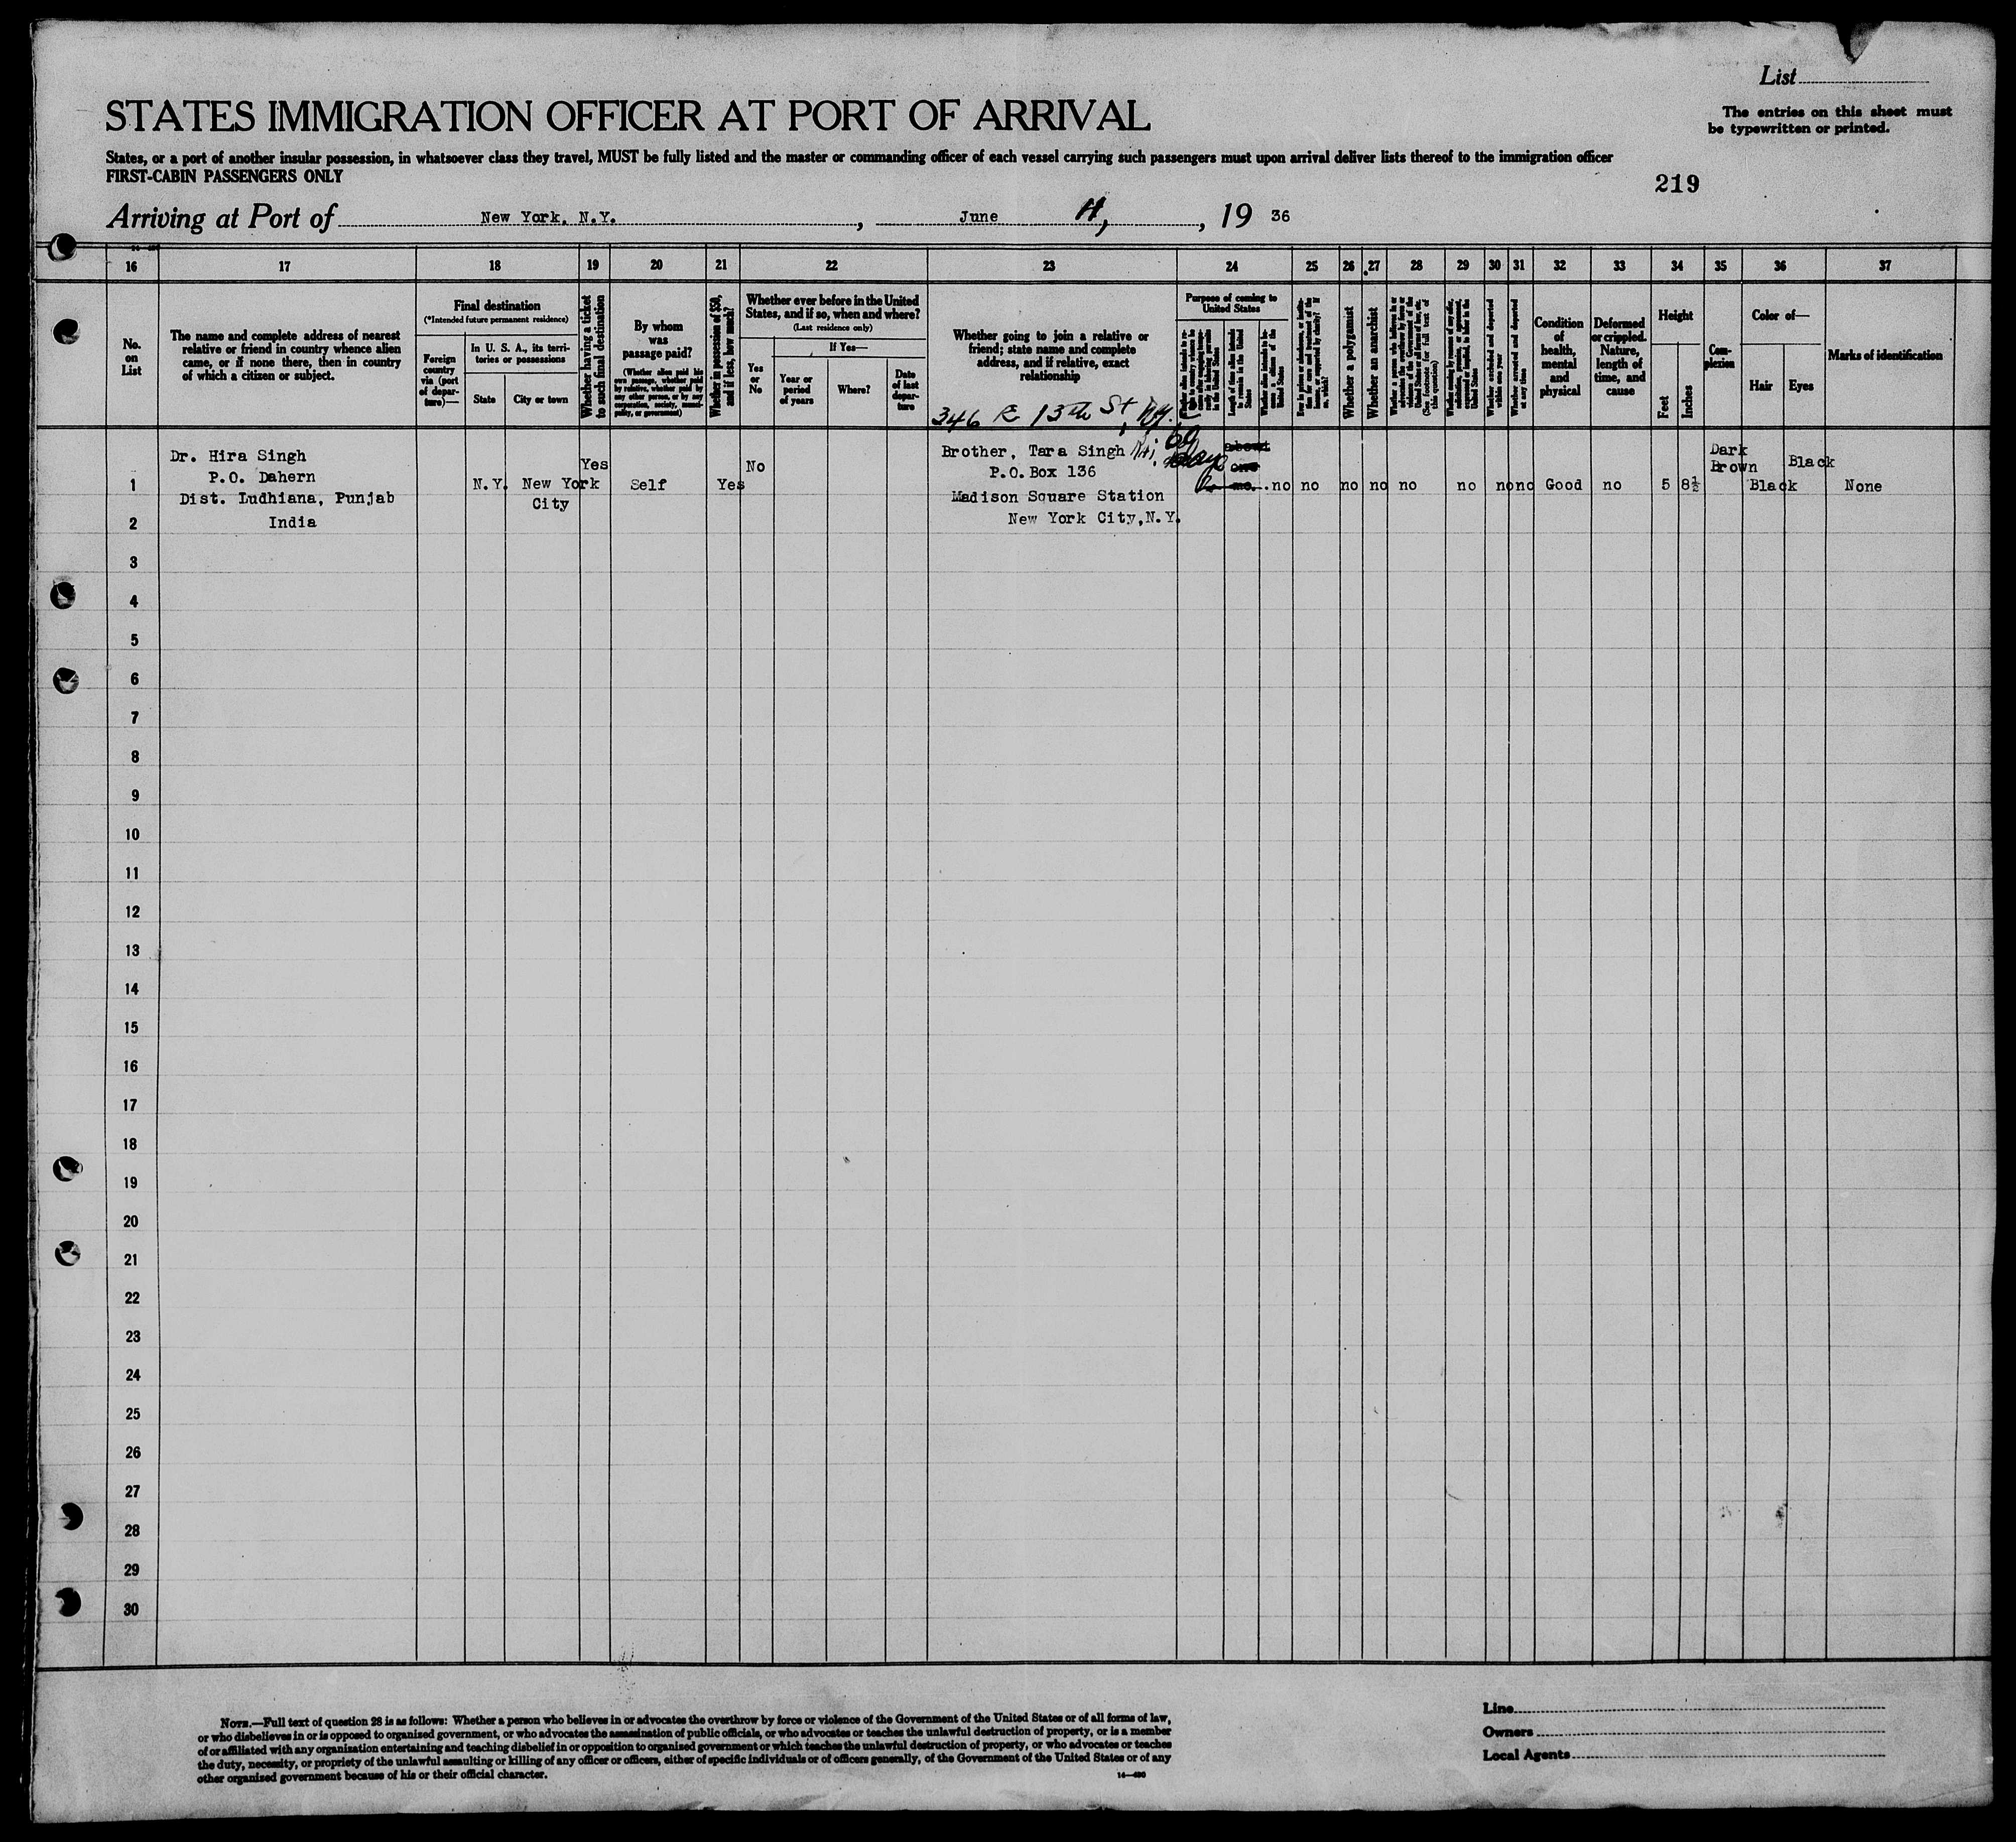 List
STATES IMMIGRATION OFFICER AT PORT OF ARRIVAL
The entries on this sheet must
be typewritten or printed.
States, or a port of another insular possession, in whatsoever class they travel, MUST be fully listed and the master or commanding officer of each vessel carrying such passengers must upon arrival deliver lists thereof to the immigration officer
FIRST-CABIN PASSENGERS ONLY
219
Arriving at Port of New York, N.Y., June 11, 19 36
16 17 18 19 20 21 22 23 24 25 26 27 28 29 30 31 32 33 34 35 36 37
No.
on
List
The name and complete address of nearest
relative or friend in country whence alien
came, or if none there, then in country
of which a citizen or subject.
Final destination
(*Intended future permanent residence)
Foreign
country
via (port
of depar-
ture)—
In U. S. A., its terri-
tories or possessions
State
City or town
Whether having a ticket
to such final destination
By whom
was
passage paid?
(Whether alien paid his
own passage, whether paid
by relative, whether paid by
any other person, or by any
corporation, society, munici-
pality, or government)
Whether in possession of $50,
and if less, how much?
Whether ever before in the United
States, and if so, when and where?
(Last residence only)
Yes
or
No
If Yes—
Year or
period
of years
Where?
Date
of last
depar-
ture
Whether going to join a relative or
friend; state name and complete
address, and if relative, exact
relationship
346 E 13th St, N.Y.
Purpose of coming to
United States
Length of time alien intends
to remain in the United
States
Whether alien intends to be-
come a citizen of the
United States
Whether a polygamist
Whether an anarchist
Whether arrested and deported
within one year
Whether arrested and deported
at any time
Condition
of
health,
mental
and
physical
Deformed
or crippled.
Nature,
length of
time, and
cause
Height
Feet
Inches
Com-
plexion
Color of—
Hair
Eyes
Marks of identification
Dr. Hira Singh
P.O. Dahern
Dist. Ludhiana, Punjab
India
N.Y.
New York
City
Yes
Self
Yes
No
Brother, Tara Singh
P.O. Box 136
Madison Square Station
New York City, N.Y.
60
days
about
one
mo.
no no no no no no no no Good no 5 8½
Dark
Brown
Black
Black
None
1
2
3
4
5
6
7
8
9
10
11
12
13
14
15
16
17
18
19
20
21
22
23
24
25
26
27
28
29
30
NOTE.—Full text of question 28 is as follows: Whether a person who believes in or advocates the overthrow by force or violence of the Government of the United States or of all forms of law,
or who disbelieves in or is opposed to organised government, or who advocates the assassination of public officials, or who advocates or teaches the unlawful destruction of property, or is a member
of or affiliated with any organization entertaining and teaching disbelief in or opposition to organised government or which teaches the unlawful destruction of property, or who advocates or teaches
the duty, necessity, or propriety of the unlawful assaulting or killing of any officer or officers, either of specific individuals or of officers generally, of the Government of the United States or of any
other organised government because of his or their official character.
14—430
Line
Owners
Local Agents